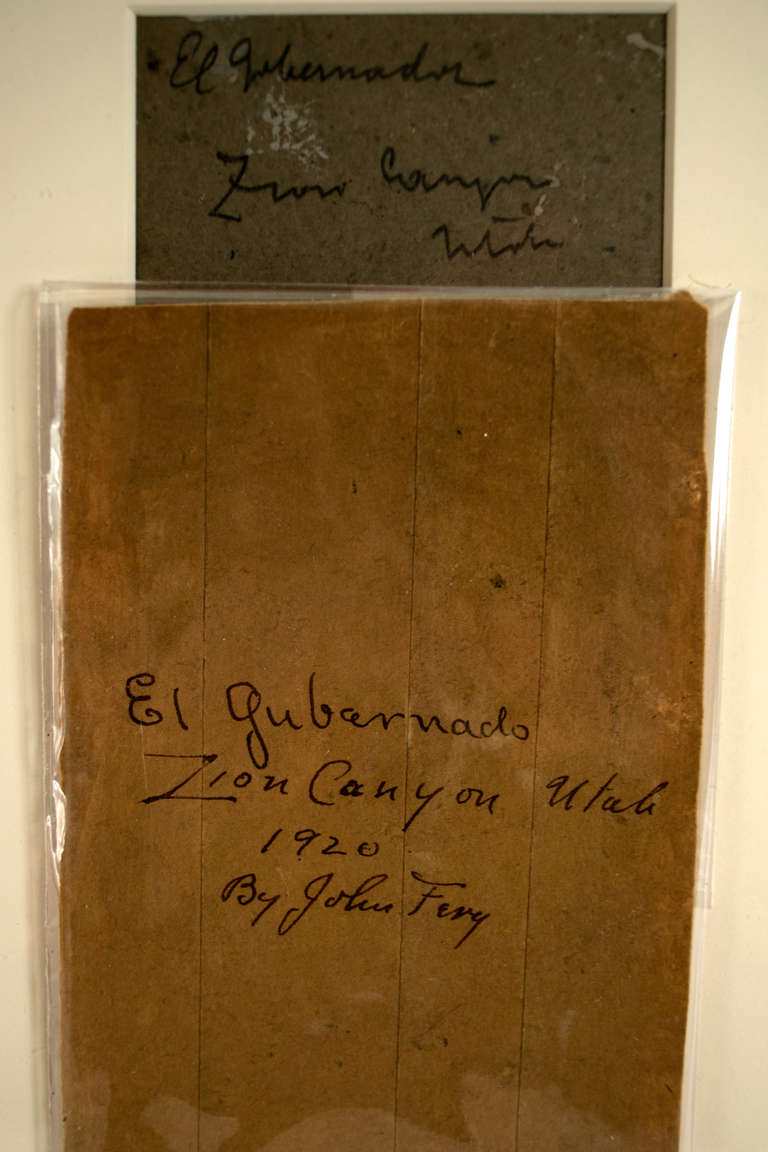 El Gobernador
Zion Canyon
Utah
El Gubernado
Zion Canyon Utah
1920
By John Fery